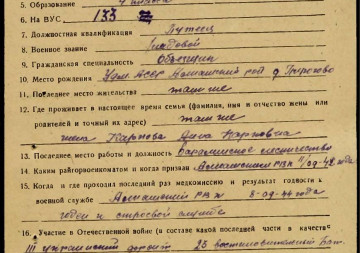 5. Образование 4 класса
6. На ВУС 133
7. Должностная квалификация Путеец
8. Военное звание Рядовой
9. Гражданская специальность Объездчик
10. Место рождения Удм АССР Алнашский р-н д.
11. Последнее место жительства там же
12. Где проживает в настоящее время семья (фамилия, имя и отчество жены или
родителей и точный их адрес) там же
жена Карпова Анна Карповна
13. Последнее место работы и должность лесничество
14. Каким райгорвоенкоматом и когда призван Алнашским РВК 09.42
15. Когда и где проходил последний раз медкомиссию и результат годности к
военной службе Алнашский РВК 8-09.42 года
годен к строевой службе
16. Участие в Отечественной войне (и составе какой последней части в качестве
III Украинский фронт 23 восстановительный бат.